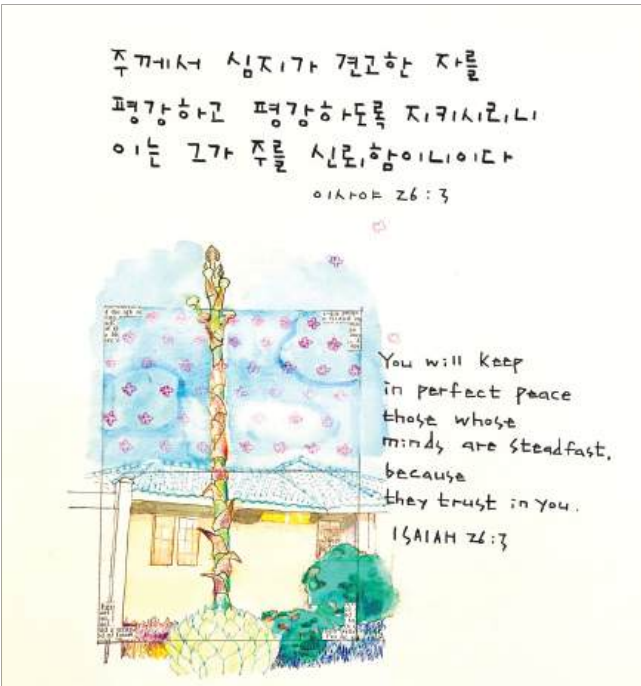 주께서 심지가 견고한 자를
평강하고 평강하도록 지키시리니
이는 그가 주를 신뢰함이니이다
이사야 26:3
You will keep
in perfect peace
those whose
minds are steadfast,
because
they trust in you.
ISAIAH 26:3